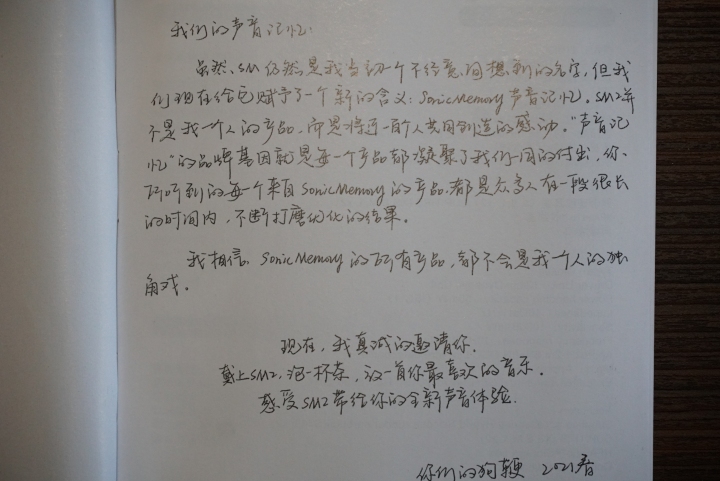 我们的声音记忆:
虽然、SM仍然是我当初一个不经意间想到的名字，但我
们现在给它赋予了一个新的含义：SonicMemory声音记忆。SM2并
不是我一个人的产品，而是将近一百人共同创造的感动。“声音记
忆”的品牌基因就是每一个产品都凝聚了我们一同的付出，你
所听到的每一个来自SonicMemory的产品，都是众多人在一段很长
的时间内，不断打磨优化的结果。
我相信，SonicMemory的所有产品，都不会是我一个人的独
角戏。
现在，我真诚的邀请你，
戴上SM2，泡一杯茶，放一首你最喜欢的音乐。
感受SM2带给你的全新声音体验.
你们的狗鞭 2021春